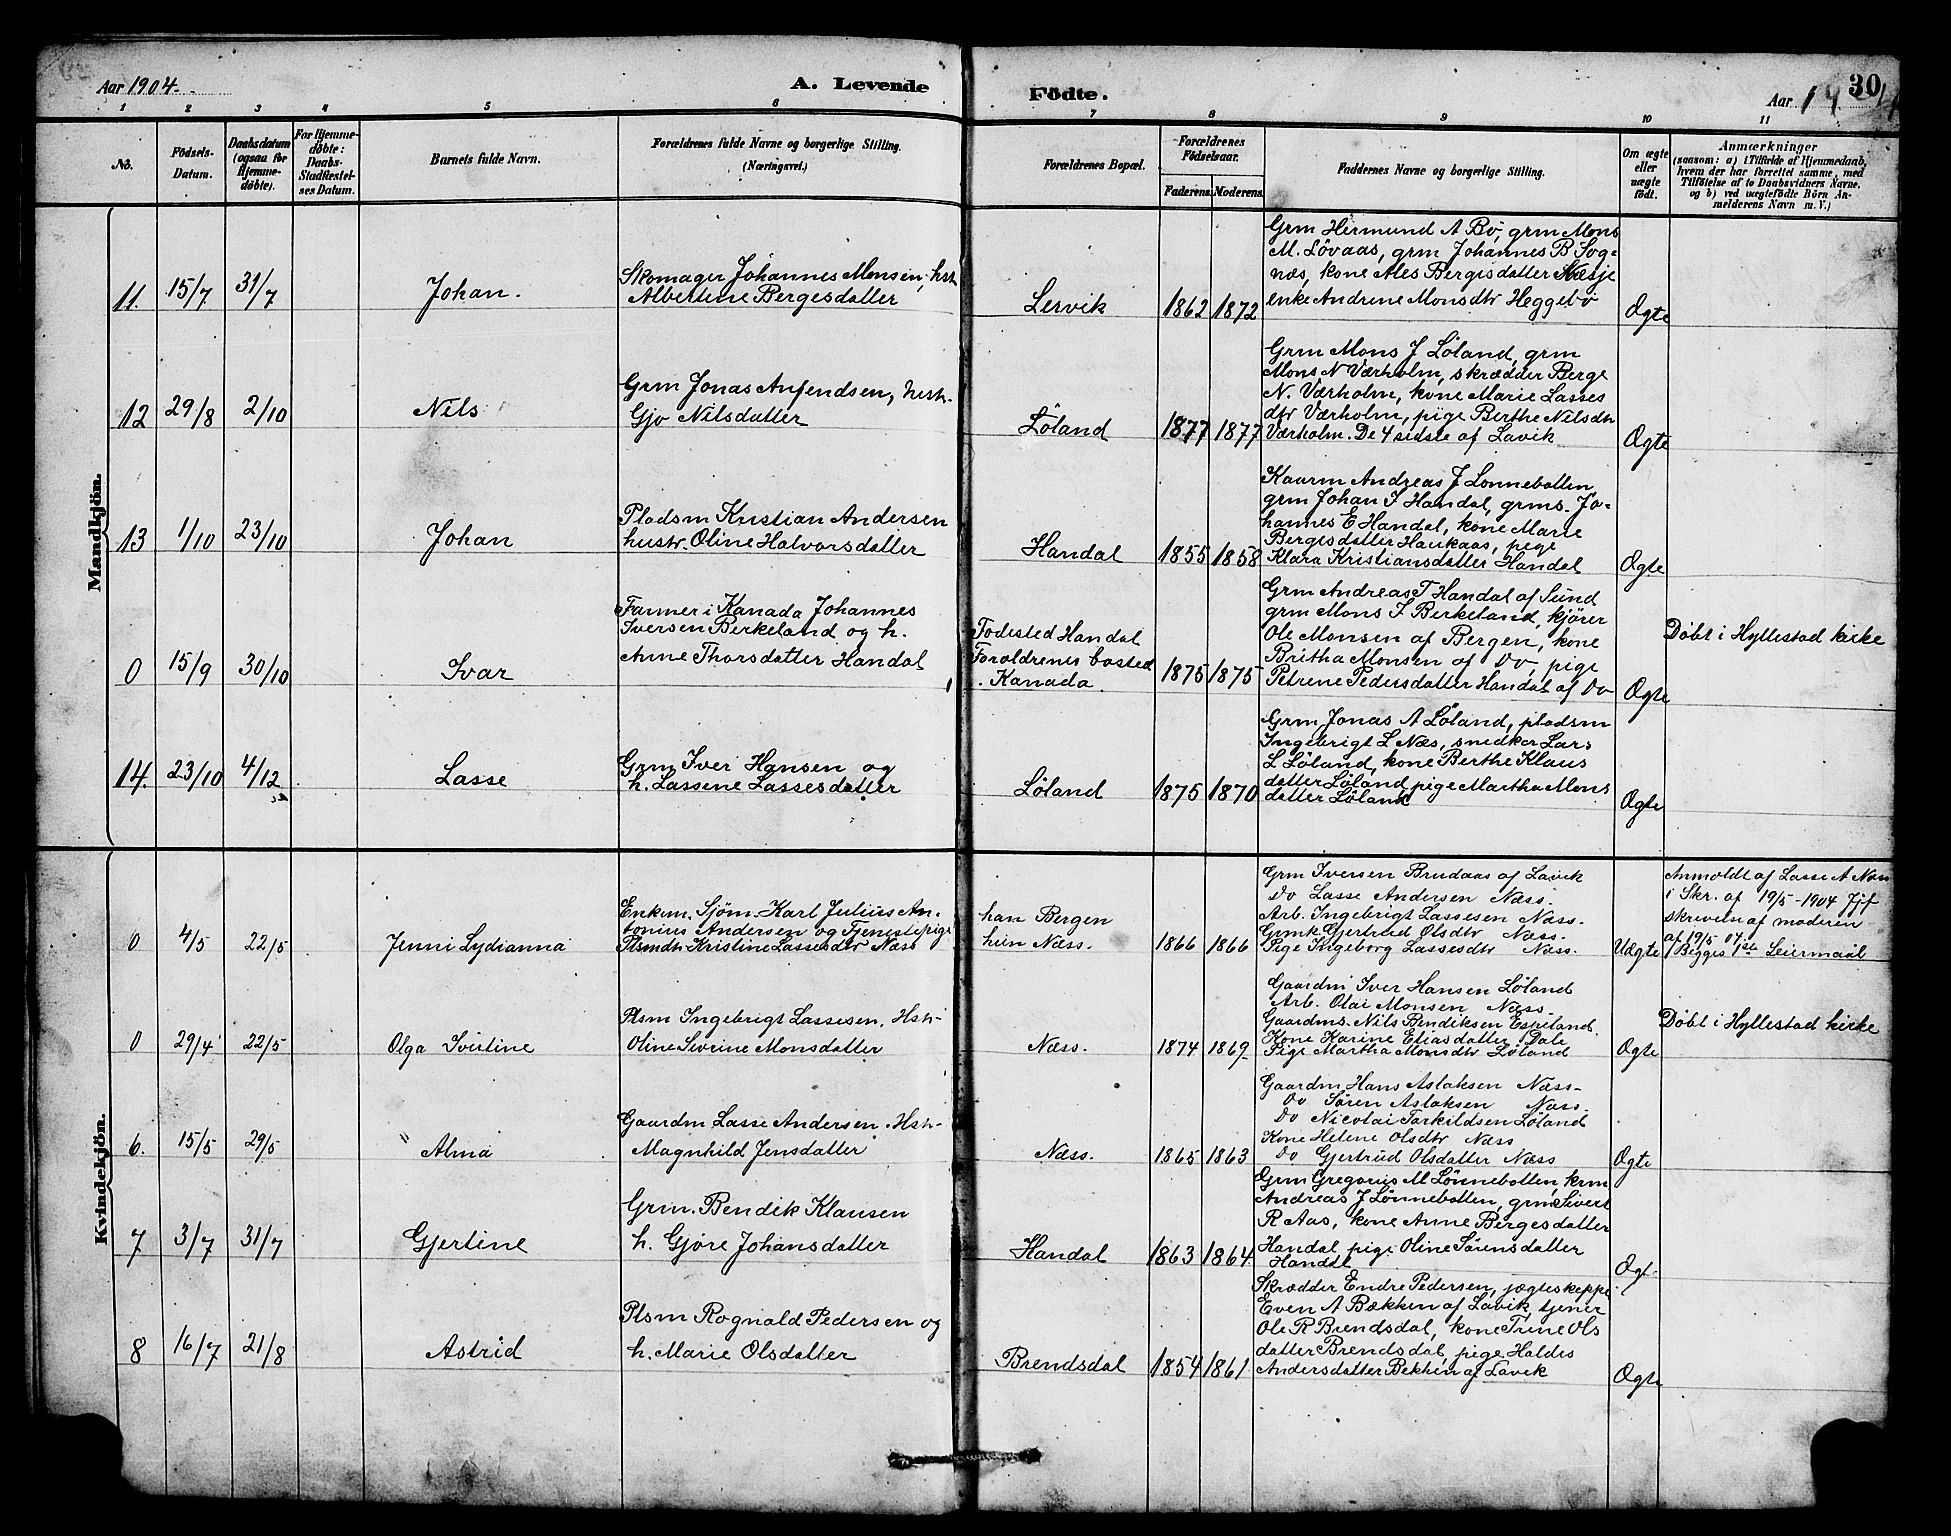 Aar 1904.
A. Levende
Födte.
Aar 19
30
1 2 3 4 5 6 7 8 9 10 11
No.
Födsels-Datum.
Daabsdatum (ogsaa för Hjemme-döbte).
For Hjemme-döbte: Daabs-Stadfæstel-ses Datum.
Barnets fulde Navn.
Forældrenes fulde Navne og borgerlige Stilling.
(Næringsvei.)
Forældrenes Bopæl.
Forældrenes Födselsaar.
Faderens. Moderens.
Faddernes Navne og borgerlige Stilling.
Om ægte eller uægte födt.
Anmærkninger
(saasom: a) i Tilfælde af Hjemmedaab,
hvem der har forrettet samme, med
Tilföielse af to Daabsvidners Navne,
og b) ved uægtefödte Börn An-
melderens Navn m. V.)
Mandkjön.
11. 15/7 31/7 Johan.
Skomager Johannes Monsen, hst.
Albertine Bergesdatter
Lervik 1862 1872
Grm Hermund A Bø, grm Mons
M. Løvaas, grm Johannes B Sog-
næs, kone Ales Bergesdatter Næsje
enke Andrine Monsdtr Heggebø
Ægte
12 29/8 2/10 Nils
Grm Jonas Anfendsen, hust.
Gjo Nilsdatter
Løland 1877 1877
Grm Mons J Løland, grm
Mons N Værholm, skrædder Berge
N. Værholm, kone Marie Lasses
dtr Værholm, pige Berthe Nilsdtr
Værholm. De 4 sidste af Lavik
Ægte
13 1/10 23/10 Johan
Pladsm Kristian Andersen
hustr. Oline Halvorsdatter
Handal 1855 1858
Kaarm Andreas J Lønnebotten
grm Johan I Handal, grms. Jo-
hannes E Handal, kone Marie
Bergesdatter Haukaas, pige
Klara Kristiansdatter Handal
Ægte
0 15/9 30/10 Ivar
Farmer i Kanada Johannes
Iversen Birkeland og h.
Anne Thorsdatter Handal
Fødested Handal
Forældrenes bosted
Kanada
1875 1875
Grm Andreas T Handal af Sund
grm Mons I Berkeland, kjører
Ole Monsen af Bergen, kone
Britha Monsen af Do, pige
Petrine Pedersdatter Handal af Do
Ægte
Døbt i Hyllestad kirke
14. 23/10 4/12 Lasse
Grm Iver Hansen og
h. Lassene Lassesdatter
Løland 1875 1870
Grm Jonas A Løland, pladsm
Ingebrigt L Næs, snedker Lars
L Løland, kone Berthe Klaus
datter Løland pige Martha Mons
datter Løland
Ægte
Kvindekjön.
0 4/5 22/5 Jenni Lydianna
Enkem. Sjøm. Karl Julius An-
tonius Andersen og Tjenestepige
Plsmdtr Kristine Lassesdtr Næss
han Bergen
hun Næss.
1866 1866
Grm Iversen Brudaas af Lavik
Do Lasse Andersen Næss.
Arb. Ingebrigt Lassesen Næss.
Grmk. Gjertrud Olsdtr Næss.
Pige Ingeborg Lassesdtr Næss.
Uægte
Anmeldt af Lasse A Næss
i Skr. af 19/5-1904 Jfr
skrivelse af moderen
af 19/5 04.
Begges 1ste Leiermaal
0 29/4 22/5 Olga Ivertine
Plsm Ingebrigt Lassesen. Hst.
Oline Sivrine Monsdatter
Næss. 1874 1869
Gaardm Iver Hansen Løland
Arb. Olai Monsen Næss.
Gaardms. Nils Bendiksen Espeland.
Kone Karine Eliasdatter Dale
Pige Martha Monsdtr Løland
Ægte
Døbt i Hyllestad kirke
6. 15/5 29/5 Alma
Gaardm Lasse Andersen. Hst.
Magnhild Jensdatter
Næss. 1865 1863
Gaardm Hans Aslaksen Næss
Do Søren Aslaksen Næss
Do Nicolai Torkildsen Løland
Kone Helene Olsdtr Næss
Do Gjertrud Olsdatter Næss
Ægte
7 3/7 31/7 Gjertine
Grm. Bendik Klausen
h. Gjøre Johansdatter
Handal 1863 1864
Grm Gregorius M Lønnebotten, krm
Andreas J Lønnebotten, grm Sivert
R Aas, kone Anne Bergesdatter
Handal, pige Oline Sørensdatter
Handal
Ægt.
8 16/7 21/8 Astrid
Plsm Rognald Pedersen og
h. Marie Olsdatter
Brendsdal 1854 1861
Skrædder Endre Pedersen, jægteskipper
Even A Bækken af Lavik, tjener
Ole R Brendsdal, kone Trine Ols
datter Brendsdal, pige Haldis
Andersdatter Bekken af Lavik
Ægte